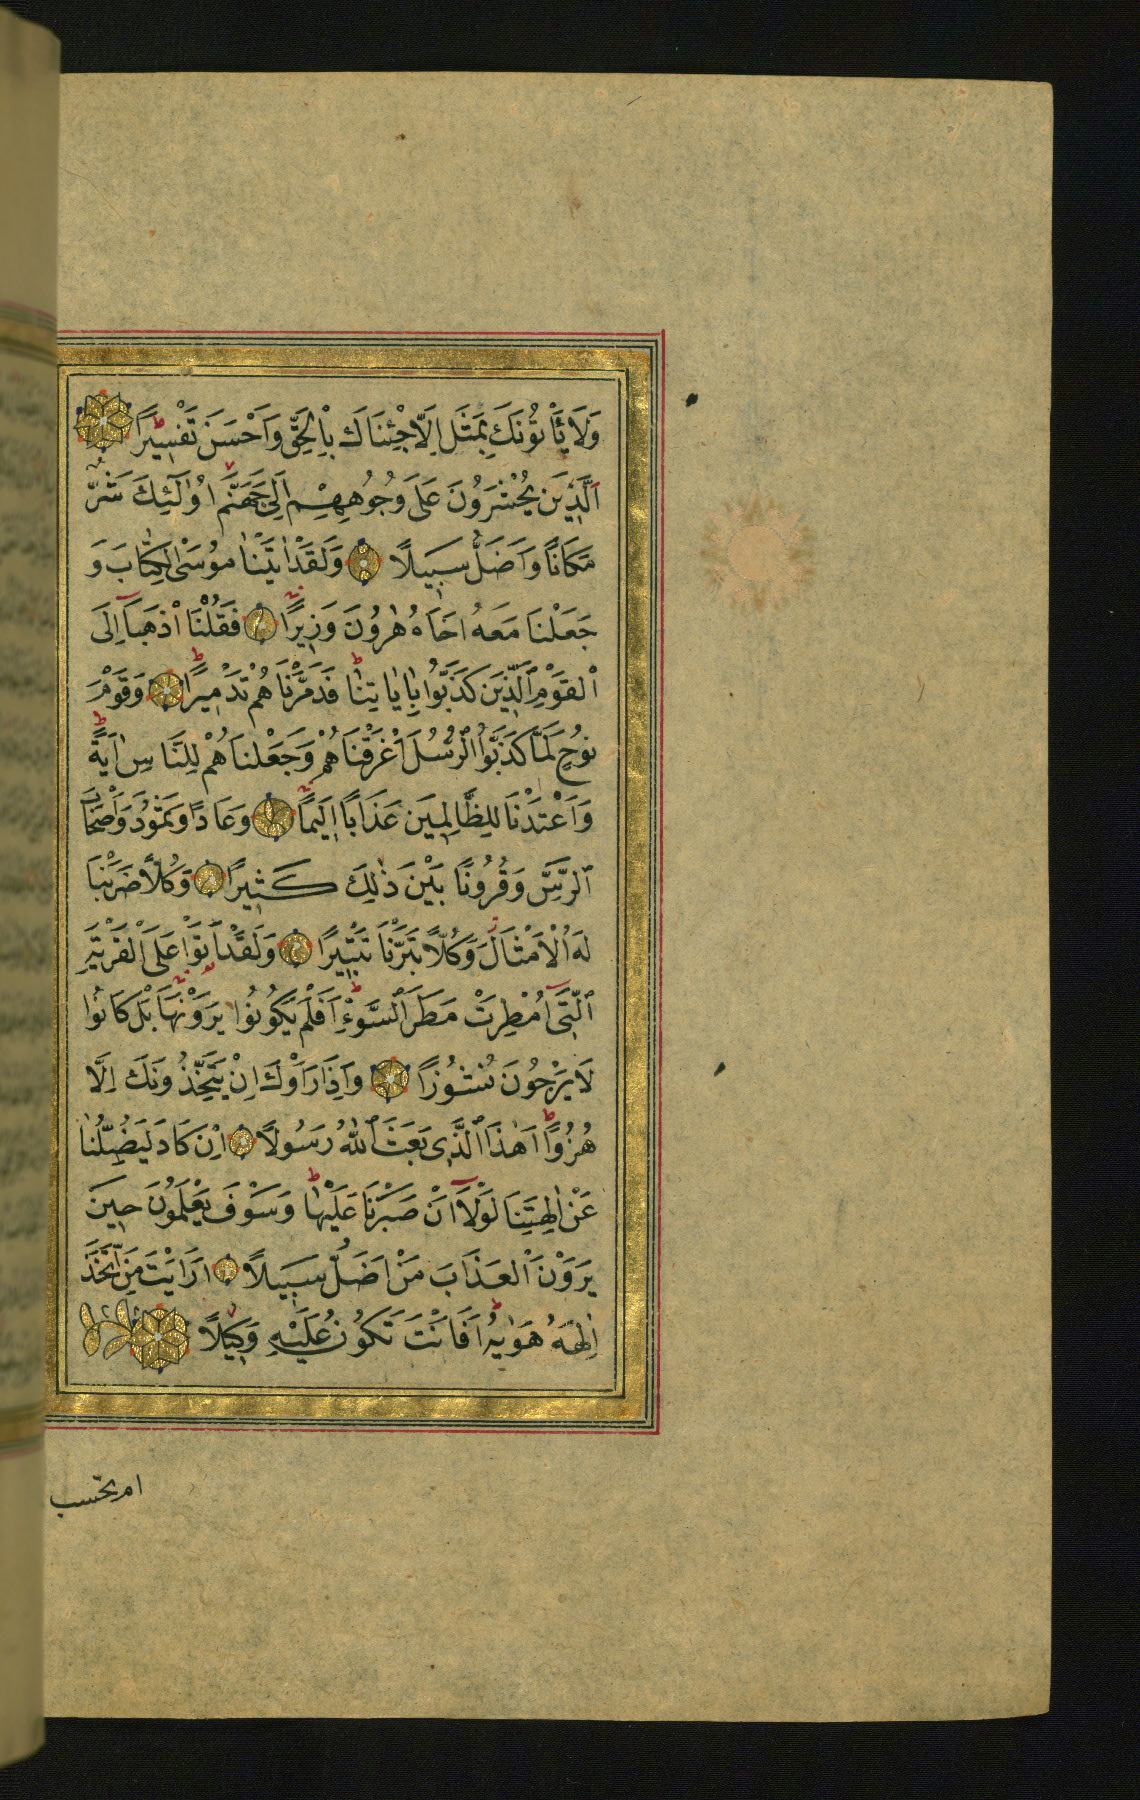 وَلَا يَأْتُونَكَ بِمَثَلٍ اِلَّا جِئْنَاكَ بِالْحَقِّ وَاَحْسَنَ تَفْسِيرًا
اَلَّذِينَ يُحْشَرُونَ عَلَى وُجُوهِهِمْ اِلَى جَهَنَّمَ اُولٰئِكَ شَرٌّ
مَكَانًا وَاَضَلُّ سَبِيلًا وَلَقَدْ اٰتَيْنَا مُوسَى الْكِتَابَ وَ
جَعَلْنَا مَعَهُ اَخَاهُ هٰرُونَ وَزِيرًا فَقُلْنَا اذْهَبَا اِلَى
الْقَوْمِ الَّذِينَ كَذَّبُوا بِاٰيَاتِنَا فَدَمَّرْنَاهُمْ تَدْمِيرًا وَقَوْمَ
نُوحٍ لَمَّا كَذَّبُوا الرُّسُلَ اَغْرَقْنَاهُمْ وَجَعَلْنَاهُمْ لِلنَّاسِ اٰيَةً
وَاَعْتَدْنَا لِلظَّالِمِينَ عَذَابًا اَلِيمًا وَعَادًا وَثَمُودَ وَاَصْحَابَ
الرَّسِّ وَقُرُونًا بَيْنَ ذٰلِكَ كَثِيرًا وَكُلًّا ضَرَبْنَا
لَهُ الْاَمْثَالَ وَكُلًّا تَبَّرْنَا تَتْبِيرًا وَلَقَدْ اَتَوْا عَلَى الْقَرْيَةِ
الَّتِى اُمْطِرَتْ مَطَرَ السَّوْءِ اَفَلَمْ يَكُونُوا يَرَوْنَهَا بَلْ كَانُوا
لَا يَرْجُونَ نُشُورًا وَاِذَا رَاَوْكَ اِنْ يَتَّخِذُونَكَ اِلَّا
هُزُوًا اَهٰذَا الَّذِى بَعَثَ اللهُ رَسُولًا اِنْ كَادَ لَيُضِلُّنَا
عَنْ اٰلِهَتِنَا لَوْلَا اَنْ صَبَرْنَا عَلَيْهَا وَسَوْفَ يَعْلَمُونَ حِينَ
يَرَوْنَ الْعَذَابَ مَنْ اَضَلُّ سَبِيلًا اَرَاَيْتَ مَنِ اتَّخَذَ
اِلٰهَهُ هَوٰيهُ اَفَاَنْتَ تَكُونُ عَلَيْهِ وَكِيلًا
ام تحسب